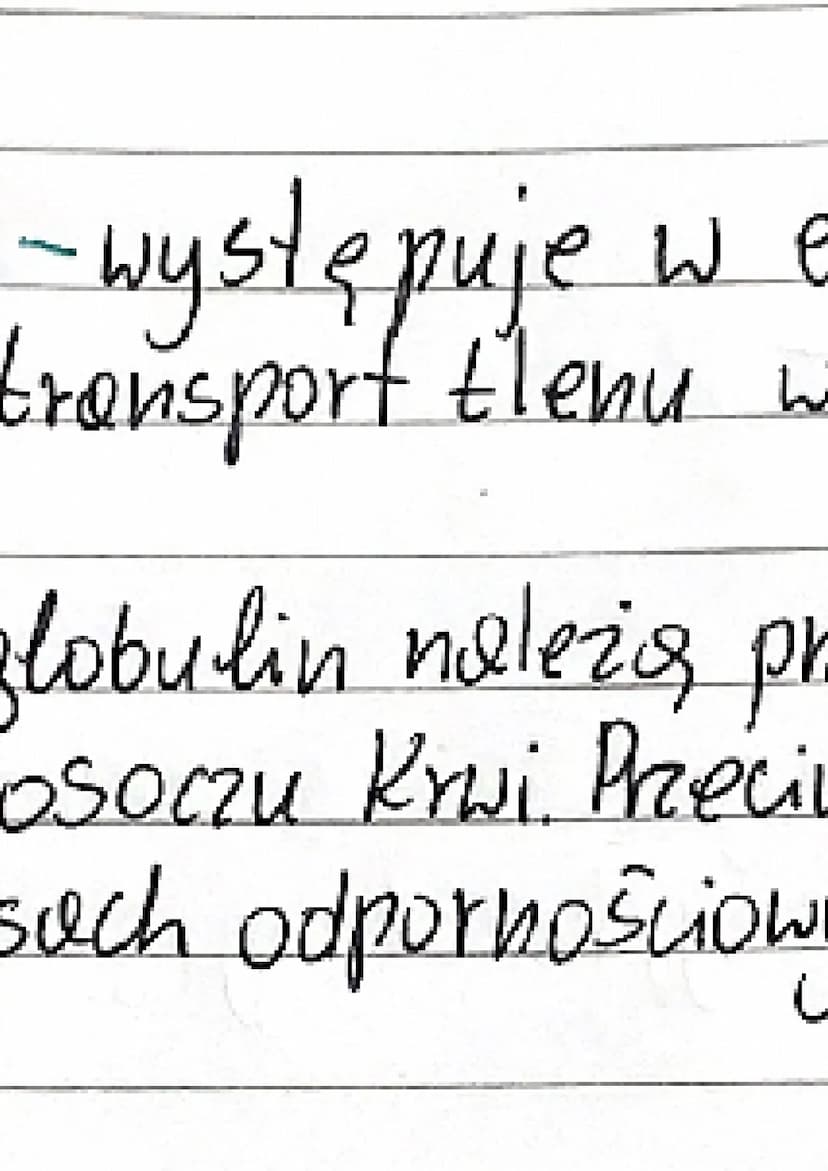 - występuje w e
transport tlenu w
globulin należą pr
osoczu krwi. Przeciw
sach odpornościow